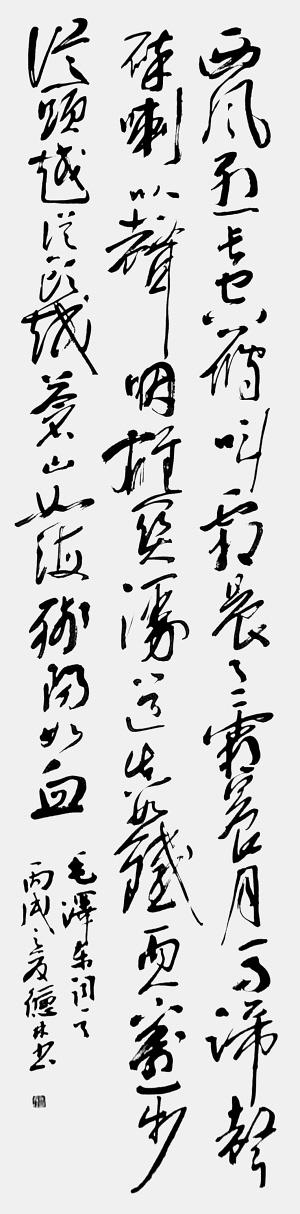 西風烈長空雁叫霜晨月霜晨月馬蹄聲
碎喇叭聲咽雄關漫道真如鐵而今邁步
從頭越從頭越蒼山如海殘陽如血
毛澤東詞一首
丙戌之夏德林書